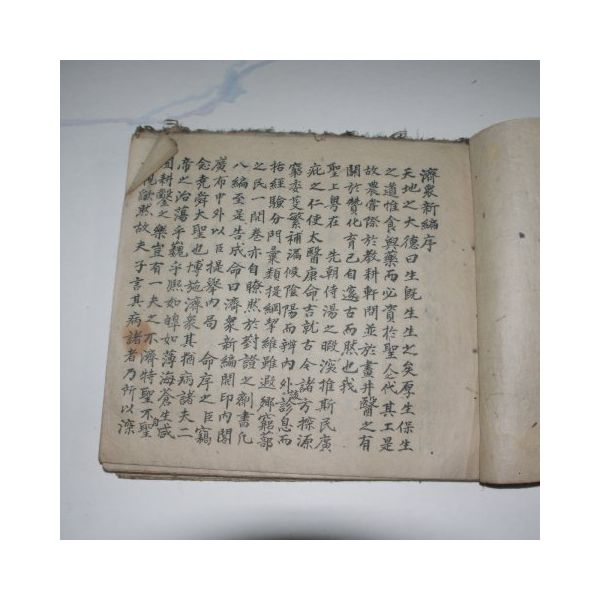 濟衆新編序
天地之大德曰生旣生生之矣厚生保生
之道惟食與藥而必資於聖人代其工是
故農嘗際於教科軒問並於畫井醫之有
關於贊化育已自邃古而然也我
聖上粤在 先朝侍湯之暇滾推斯民廣
疪之仁使太醫康命吉就古今諸方探源
窮委芟繁補漏候陰陽而辨內外診息而
括經驗分門彙類提綱挈維雖遐鄕窮蔀
之民一開卷亦自瞭然於對證之劑書凡
八編至是告成命曰濟衆新編開印內閣
廣布中外以臣提擧內局 命序之臣竊
念堯舜大聖也博施濟衆其猶病諸夫二
帝之治蕩乎巍乎熙如皥如薄海蒼生咸
囿耕鑿之樂豈有一夫之不濟特聖不聖
視歉然故夫子言其病諸者乃所以深